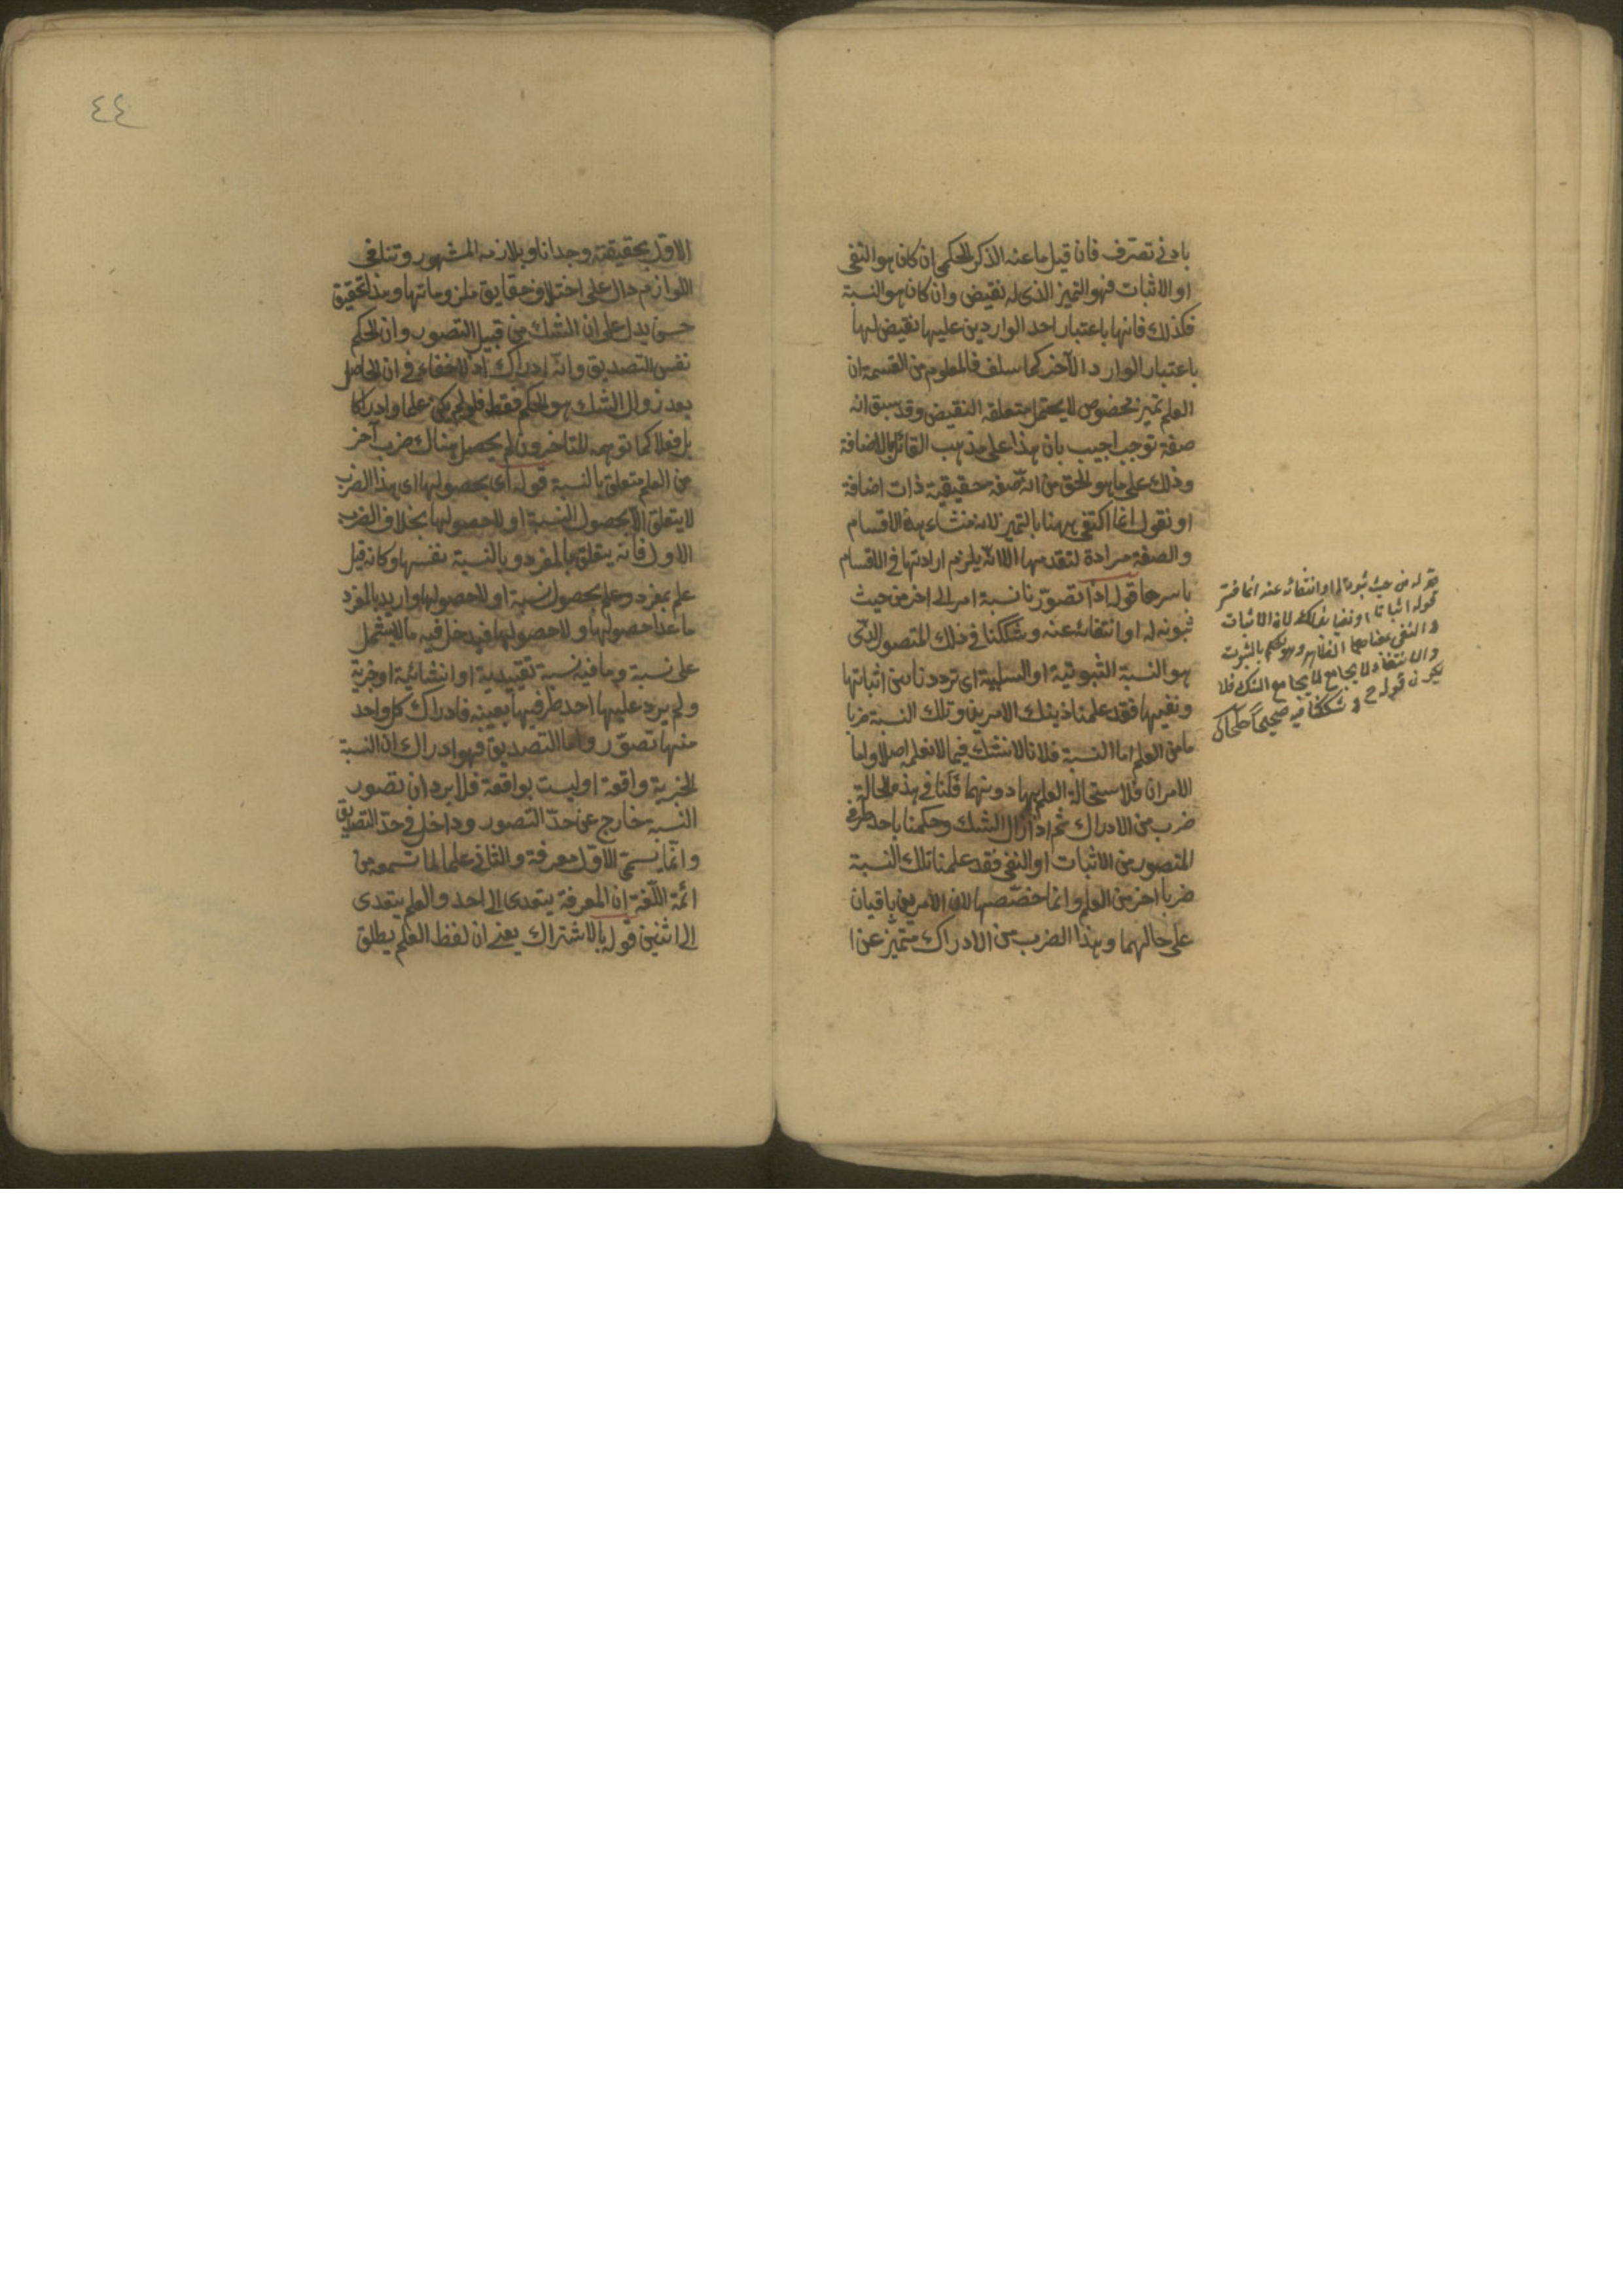 بادنى تصرف فان قيل ما عنه الذكر الحكمى ان كان هو النفى
او الاثبات فهو التميز الذى له نقيض وان كان هو النسبة
فكذلك فانها باعتبار احد الواردين عليها نقيض لها
باعتبار الوارد الآخر كما سلف فالمعلوم من القسمة ان
العلم تميز مخصوص لا يحتمل متعلقه النقيض وقد سبق انه
صفة توجب اجيب بان هذا على مذهب القائل بالاضافة
وذلك على ما هو الحق من انه صفة حقيقية ذات اضافة
او نقول انما اكتفى ههنا بالتميز لانه منشاء هذه الاقسام
والصفة مرادة لتقدمها الا انه يلزم ارادتها فى الاقسام
باسرها قوله اذا تصورنا نسبة امر الى اخر من حيث
ثبوته له او انتفائه عنه وشككنا فى ذلك المتصور الذى
هو النسبة الثبوتية او السلبية اى ترددنا بين اثباتها
ونفيها فقد علمنا ذينك الامرين وتلك النسبة ضربا
ما من العلم اما النسبة فلانا لا نشك فيما لا نعلمه اصلا واما
الامران فلاستحالة العلم بها دونهما فلنا فى هذه الحالة
ضرب من الادراك ثم اذا زال الشك وحكمنا باحد طرفى
المتصور من الاثبات او النفى فقد علمنا تلك النسبة
ضربا اخر من العلم وانما خصصها لان الامرين باقيان
على حالهما وهذا الضرب من الادراك متميز عن ا
قوله من حيث ثبوته له او انتفائه عنه انما فسر
قوله اثباتا او نفيا بذلك لان الاثبات
والنفى بمعناهما الظاهر وهو الحكم بالثبوت
والانتفاء لا يجامع الشك فلا
يكون قوله ح وشككنا فيه صحيحا
٤٤
الاول بحقيقته وجدانا وبلازمه المشهور وتنافى
اللوازم دال على اختلاف حقايق ملزوماتها وهذا تحقيق
حسن يدل على ان الشك من قبيل التصور وان الحكم
نفس التصديق وانه ادراك اذ لا خفاء فى ان الحاصل
بعد زوال الشك هو الحكم فقط فلو لم يكن علما وادراكا
بل فعلا كما توهمه المتاخرون لم يحصل هناك ضرب آخر
من العلم متعلق بالنسبة قوله اى بحصولها اى هذا الضرب
لا يتعلق الا بحصول النسبة او لا حصولها بخلاف الضرب
الاول فانه يتعلق بالمفرد وبالنسبة نفسها وكانه قيل
علم بمفرد وعلم بحصول نسبة او لا حصولها واريد بالمفرد
ما عدا حصولها ولا حصولها فيدخل فيه ما لا يشتمل
على نسبة وما فيه نسبة تقييدية او انشائية او خبرية
ولم يرد عليها احد طرفيها بعينه فادراك كل واحد
منها تصور واما التصديق فهو ادراك ان النسبة
الخبرية واقعة او ليست بواقعة فلا يرد ان تصور
النسبة خارج عن حد التصور وداخل فى حد التصديق
وانما يسمى الاول معرفة والثانى علما لما تسمعه من
ائمة اللغة ان المعرفة يتعدى الى احد والعلم يتعدى
الى اثنين قوله بالاشتراك يعنى ان لفظ العلم يطلق